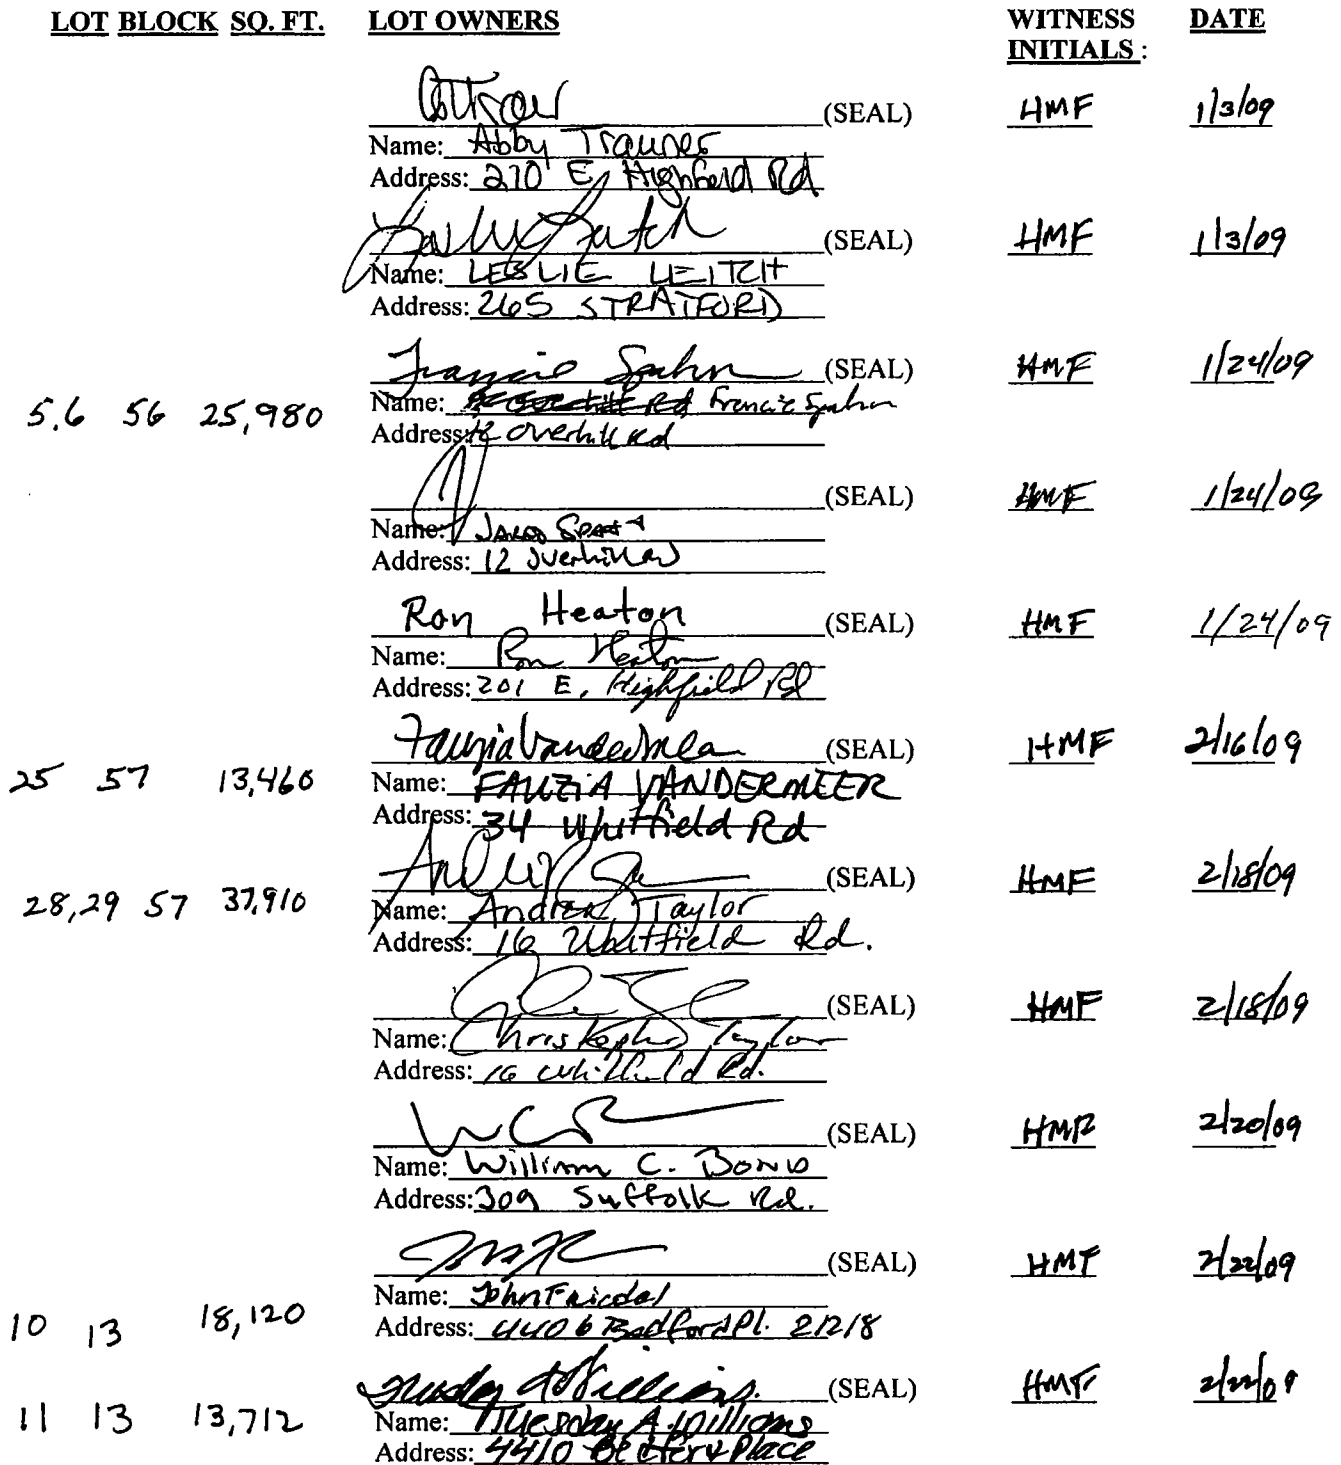 LOT BLOCK SQ. FT. LOT OWNERS WITNESS INITIALS: DATE
(SEAL) HMF 1/3/09
Name: Abby Trauner
Address: 270 E Highfield Rd
Leslie Leitch (SEAL) HMF 1/3/09
Name: LESLIE LEITCH
Address: 265 STRATFORD
Francie Spahn (SEAL) HMF 1/24/09
5,6 56 25,980 Name: Francie Spahn
Address: 12 Overhill Rd
(SEAL) HMF 1/24/09
Name: Jared
Address: 12 Overhill Rd
Ron Heaton (SEAL) HMF 1/24/09
Name: Ron Heaton
Address: 201 E. Highfield Rd
Fauzia Vandermeer (SEAL) HMF 2/16/09
25 57 13,460 Name: FAUZIA VANDERMEER
Address: 34 Whitfield Rd
(SEAL) HMF 2/18/09
28,29 57 37,910 Name: Andrea Taylor
Address: 16 Whitfield Rd.
(SEAL) HMF 2/18/09
Name: Christopher Taylor
Address: 16 Whitfield Rd.
(SEAL) HMF 2/20/09
Name: William C. Bond
Address: 309 Suffolk Rd.
(SEAL) HMF 2/22/09
Name: John Fricdel
10 13 18,120 Address: 4406 Bedford Pl. 21218
Tuesday A Williams. (SEAL) HMF 2/22/09
11 13 13,712 Name: Tuesday A. Williams
Address: 4410 Bedford Place